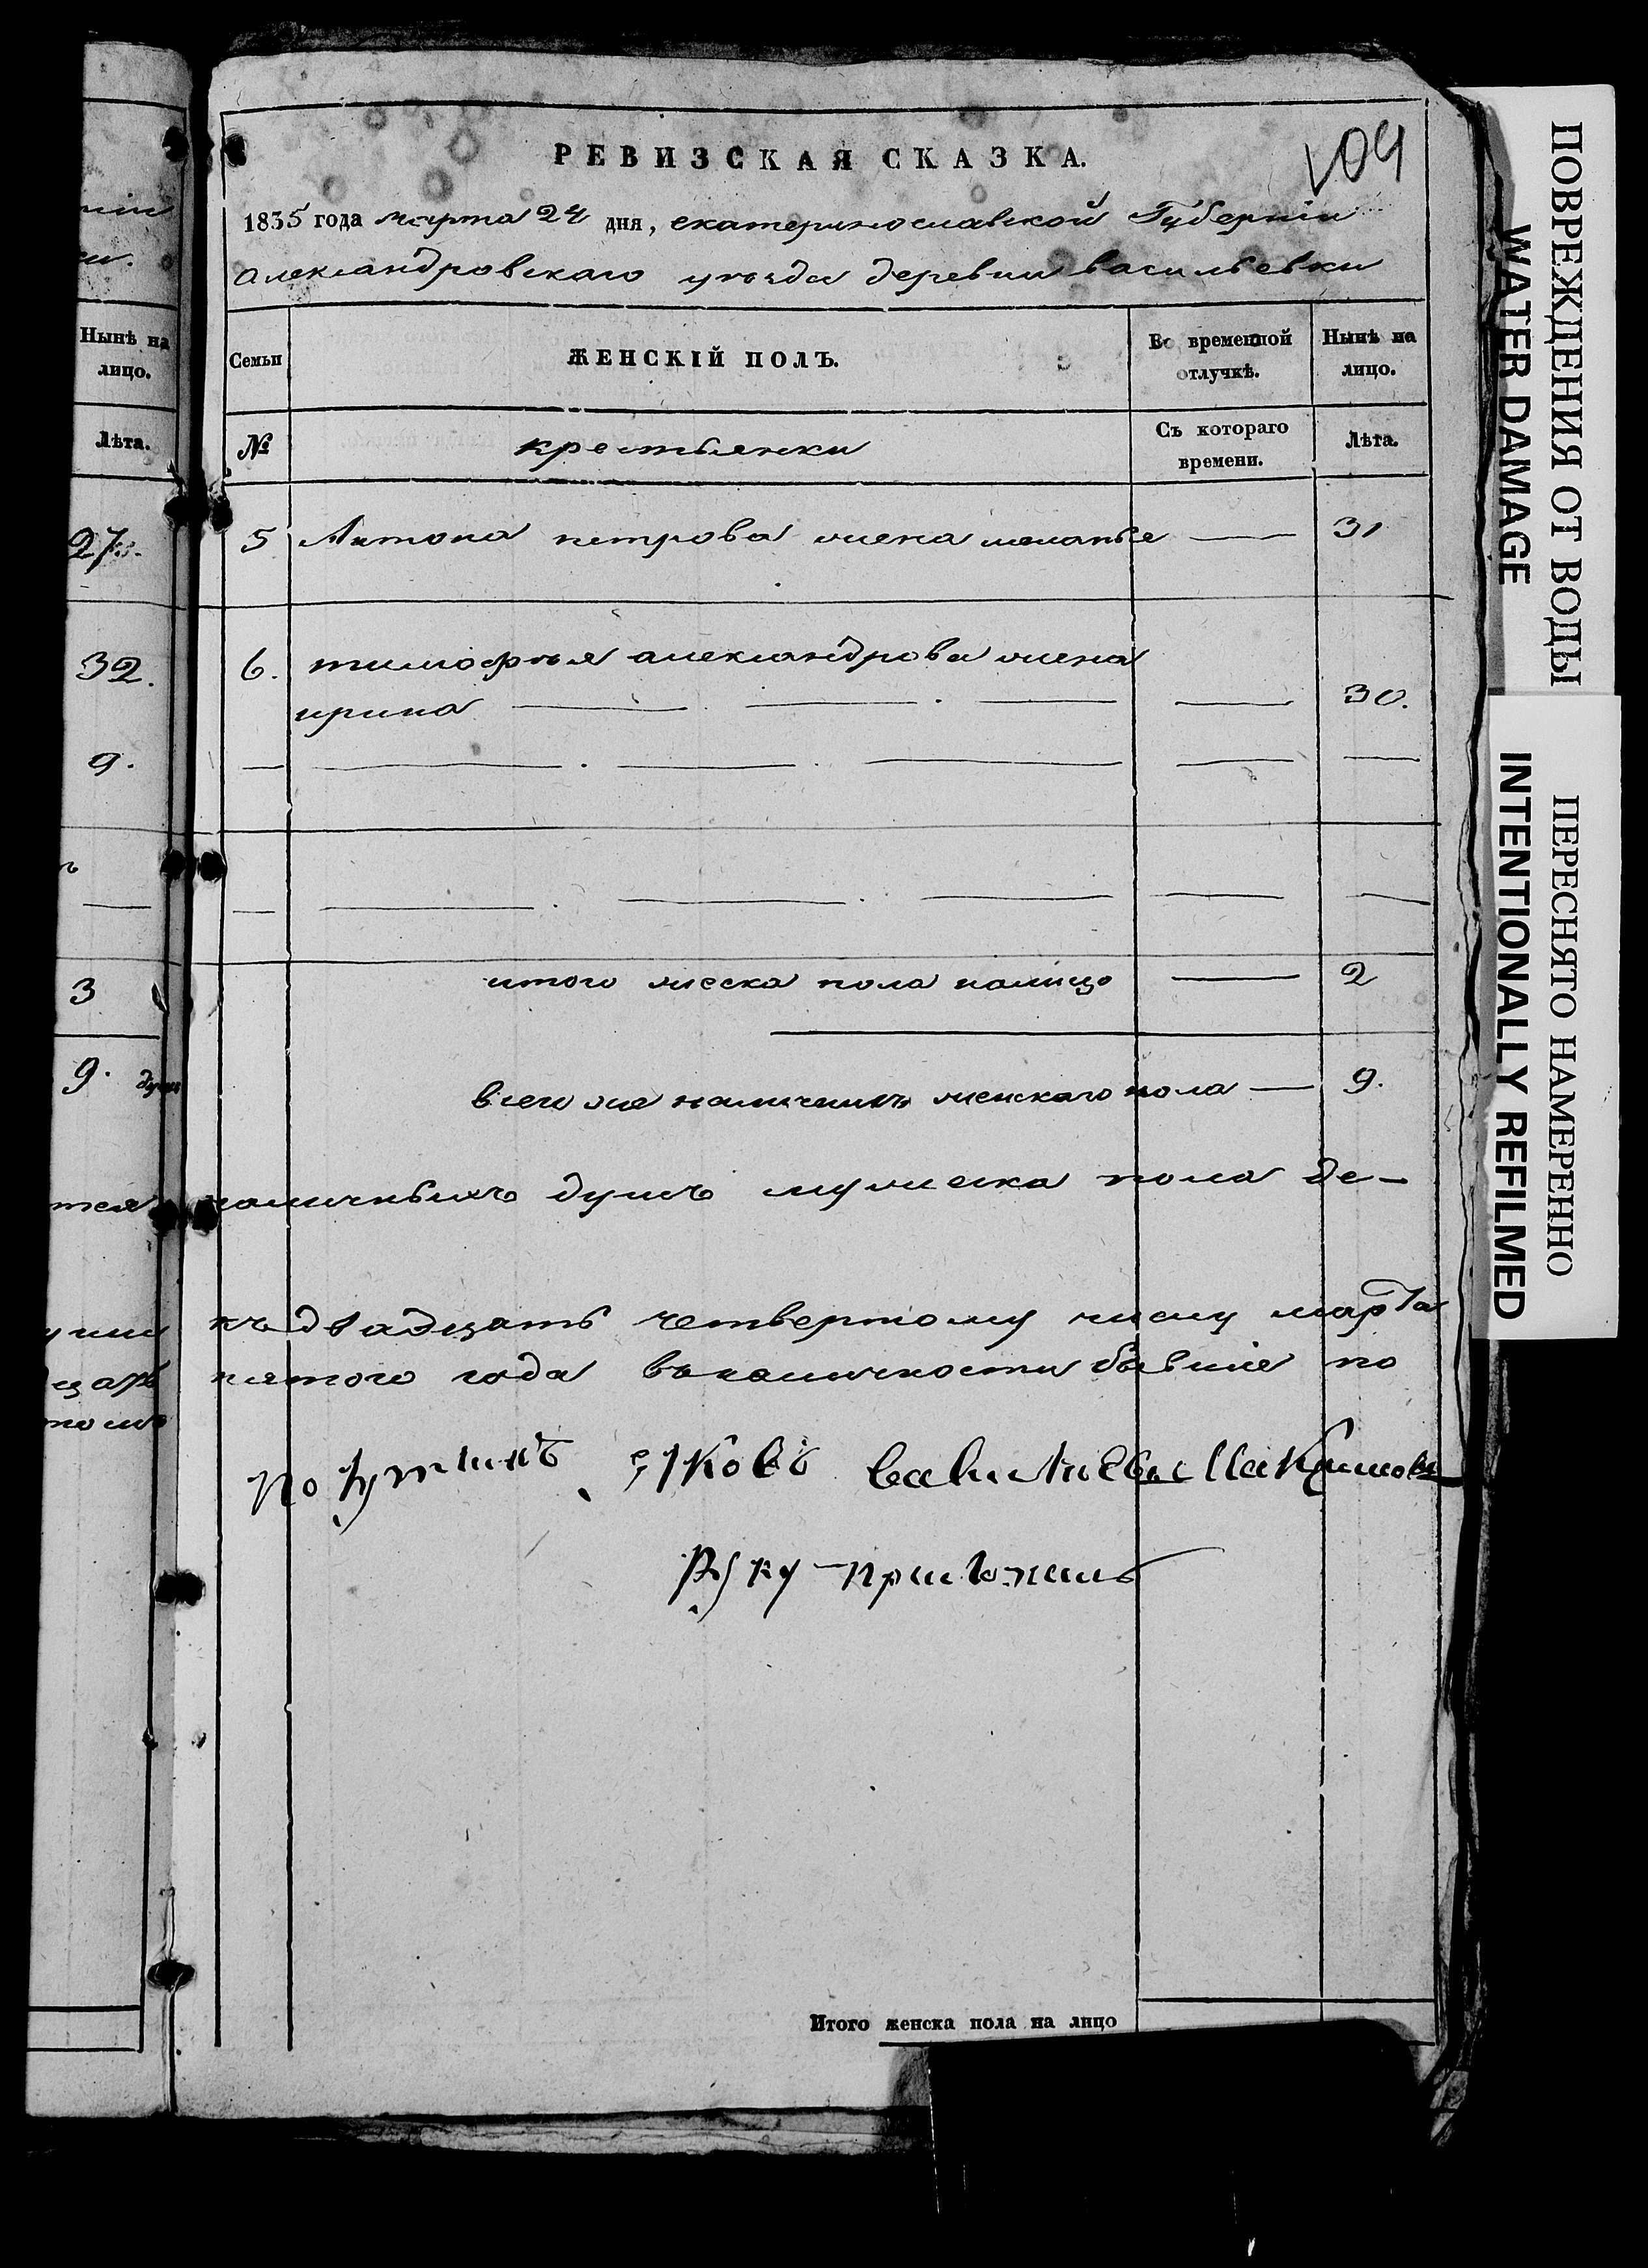 РЕВИЗСКАЯ СКАЗКА.
109
1835 года марта 24 дня, екатеринославской Губерніи
Александровского уѣзда деревни васильевки
Семьи
ЖЕНСКІЙ ПОЛЪ.
Во временной отлучкѣ.
Нынѣ на лицо.
№
крестьянки
Съ котораго времени.
Лѣта.
5 Антона петрова жена меланье — 31
6. тимофѣя александрова жена
ирина — 30.
итого женска пола налицо — 2
всего же наличныхъ женскаго пола — 9.
наличныхъ душъ мужеска пола де-
къ двадцать четвертому числу марта
пятого года въ наличности бывшіе по
вавиловы
Руку приложилъ
Итого женска пола на лицо
Нынѣ на лицо.
Лѣта.
27.
32.
9.
3
9. душъ
ПОВРЕЖДЕНИЯ ОТ ВОДЫ
WATER DAMAGE
ПЕРЕСНЯТО НАМЕРЕННО
INTENTIONALLY REFILMED